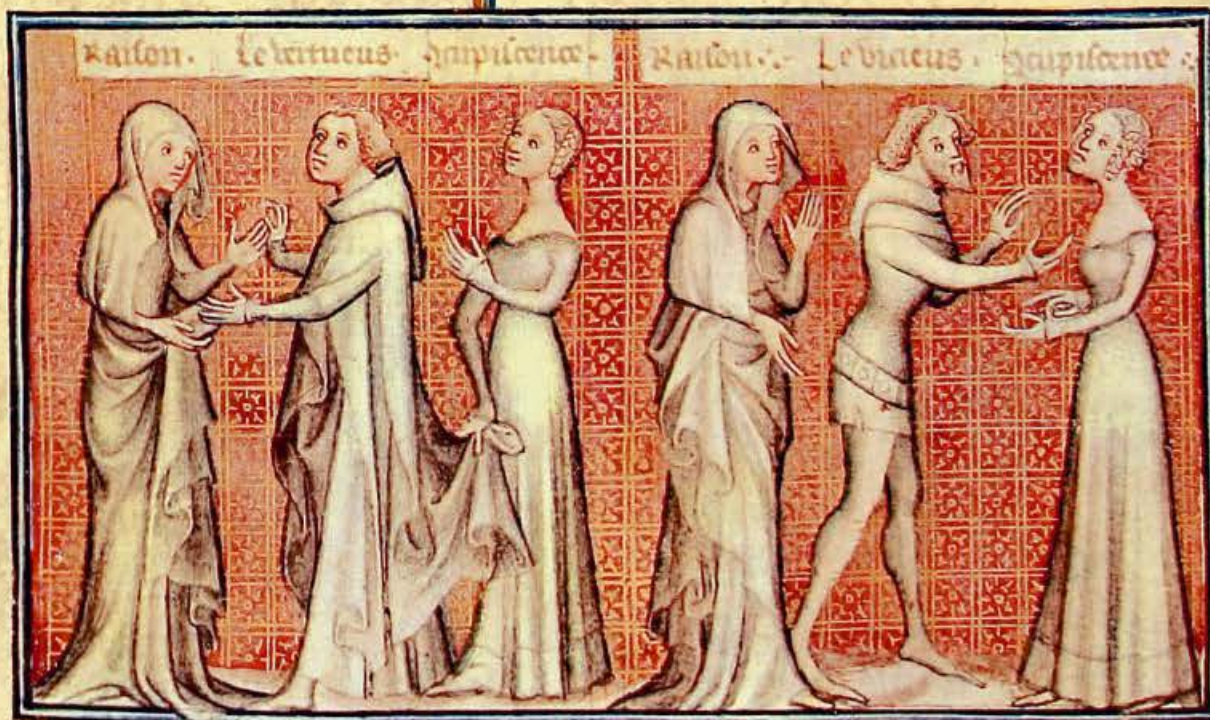 Raison. Le vertueus. Concupiscence. Raison. Le vicieus. Concupiscence.